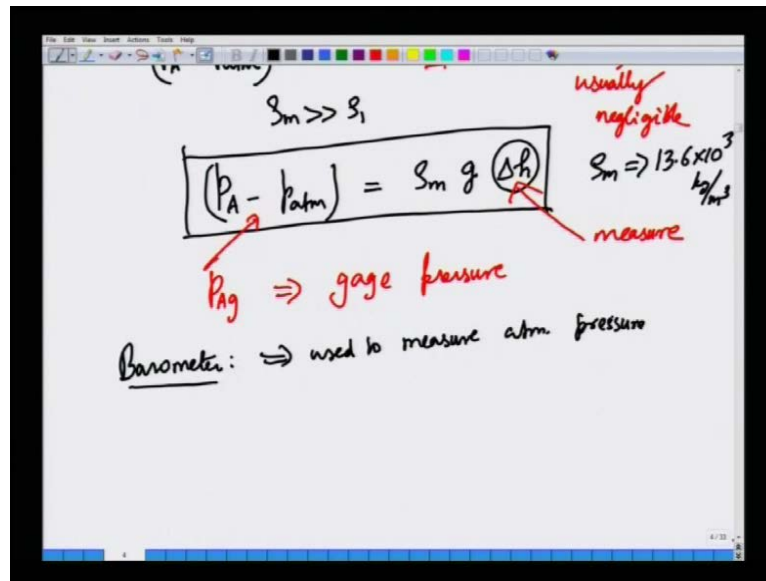 File Edit View Insert Actions Tools Help
usually
negligible
ρm >> ρ1
(PA - Patm) = ρm g Δh
ρm => 13.6x10^3 kg/m^3
measure
PAg => gage pressure
Barometer: => used to measure atm pressure
4/33
4